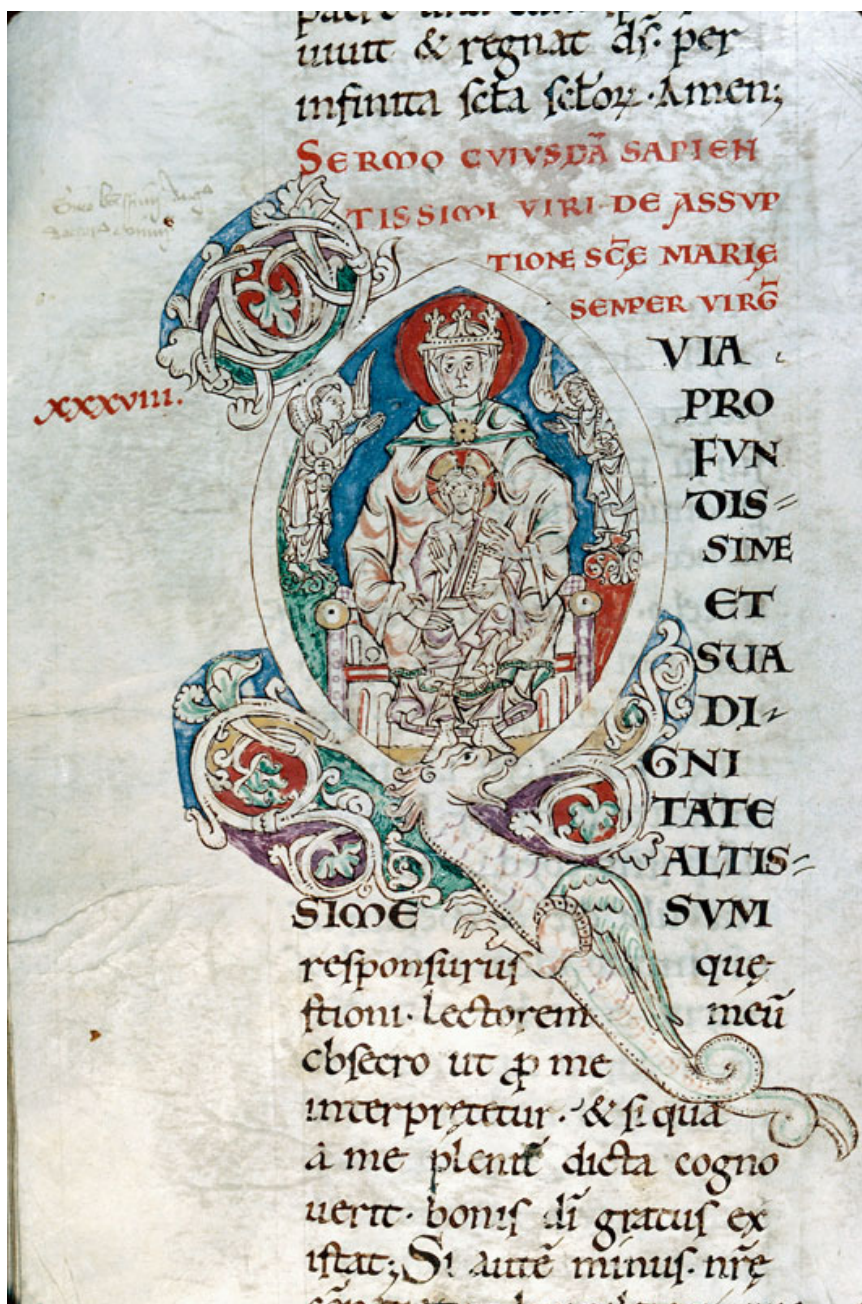 uiuit & regnat ds̄. per
infinita scl̄a scl̄oꝝ · Amen;
SERMO CVIVSDĀ SAPIEN
TISSIMI VIRI DE ASSVP
TIONE SC̄Ę MARIĘ
SENPER VIRḠ
xxxviii.
QVIA
PRO
FVN
DIS=
SIME
ET
SUA
DI-
GNI
TATE
ALTIS=
SIME SVM
responsurus quę
stioni · Lectorem meū
obsecro ut ꝓ me
interpretetur · & si qua
a me plenit̄ dicta cogno
uerit · bonis dī gratus ex
istat; Si autē minus · nr̄ę